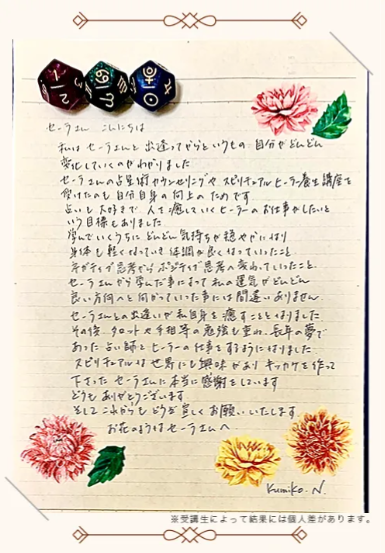 セーラさん こんにちは
私は セーラさんと 出逢ってからというもの 自分がどんどん
変化していくのがわかりました
セーラさんの占星術カウンセリングや スピリチュアルヒーラー養生講座を
受けたのも 自分自身の向上のためです
占いも大好きで 人を癒していくヒーラーのお仕事がしたいと
いう目標もありました
学んでいくうちに どんどん気持ちが穏やかになり
身体も軽くなっていき 体調が良くなっていったこと
ネガティブ思考からポジティブ思考へ変わっていったこと
セーラさんから学んだ事によって 私の運気がどんどん
良い方向へと向かっていった事には間違いありません
セーラさんとの出逢いが私自身を癒すことになりました
その後 タロットや手相等の勉強も重ね 長年の夢で
あった占い師とヒーラーの仕事をするようになりました
スピリチュアルな世界にも興味があり キッカケを作って
下さった セーラさんに本当に感謝をしています
どうもありがとうございます
そしてこれからも どうぞ宜しくお願いいたします
お花のようなセーラさんへ
Kumiko. N.
※受講生によって結果には個人差があります。